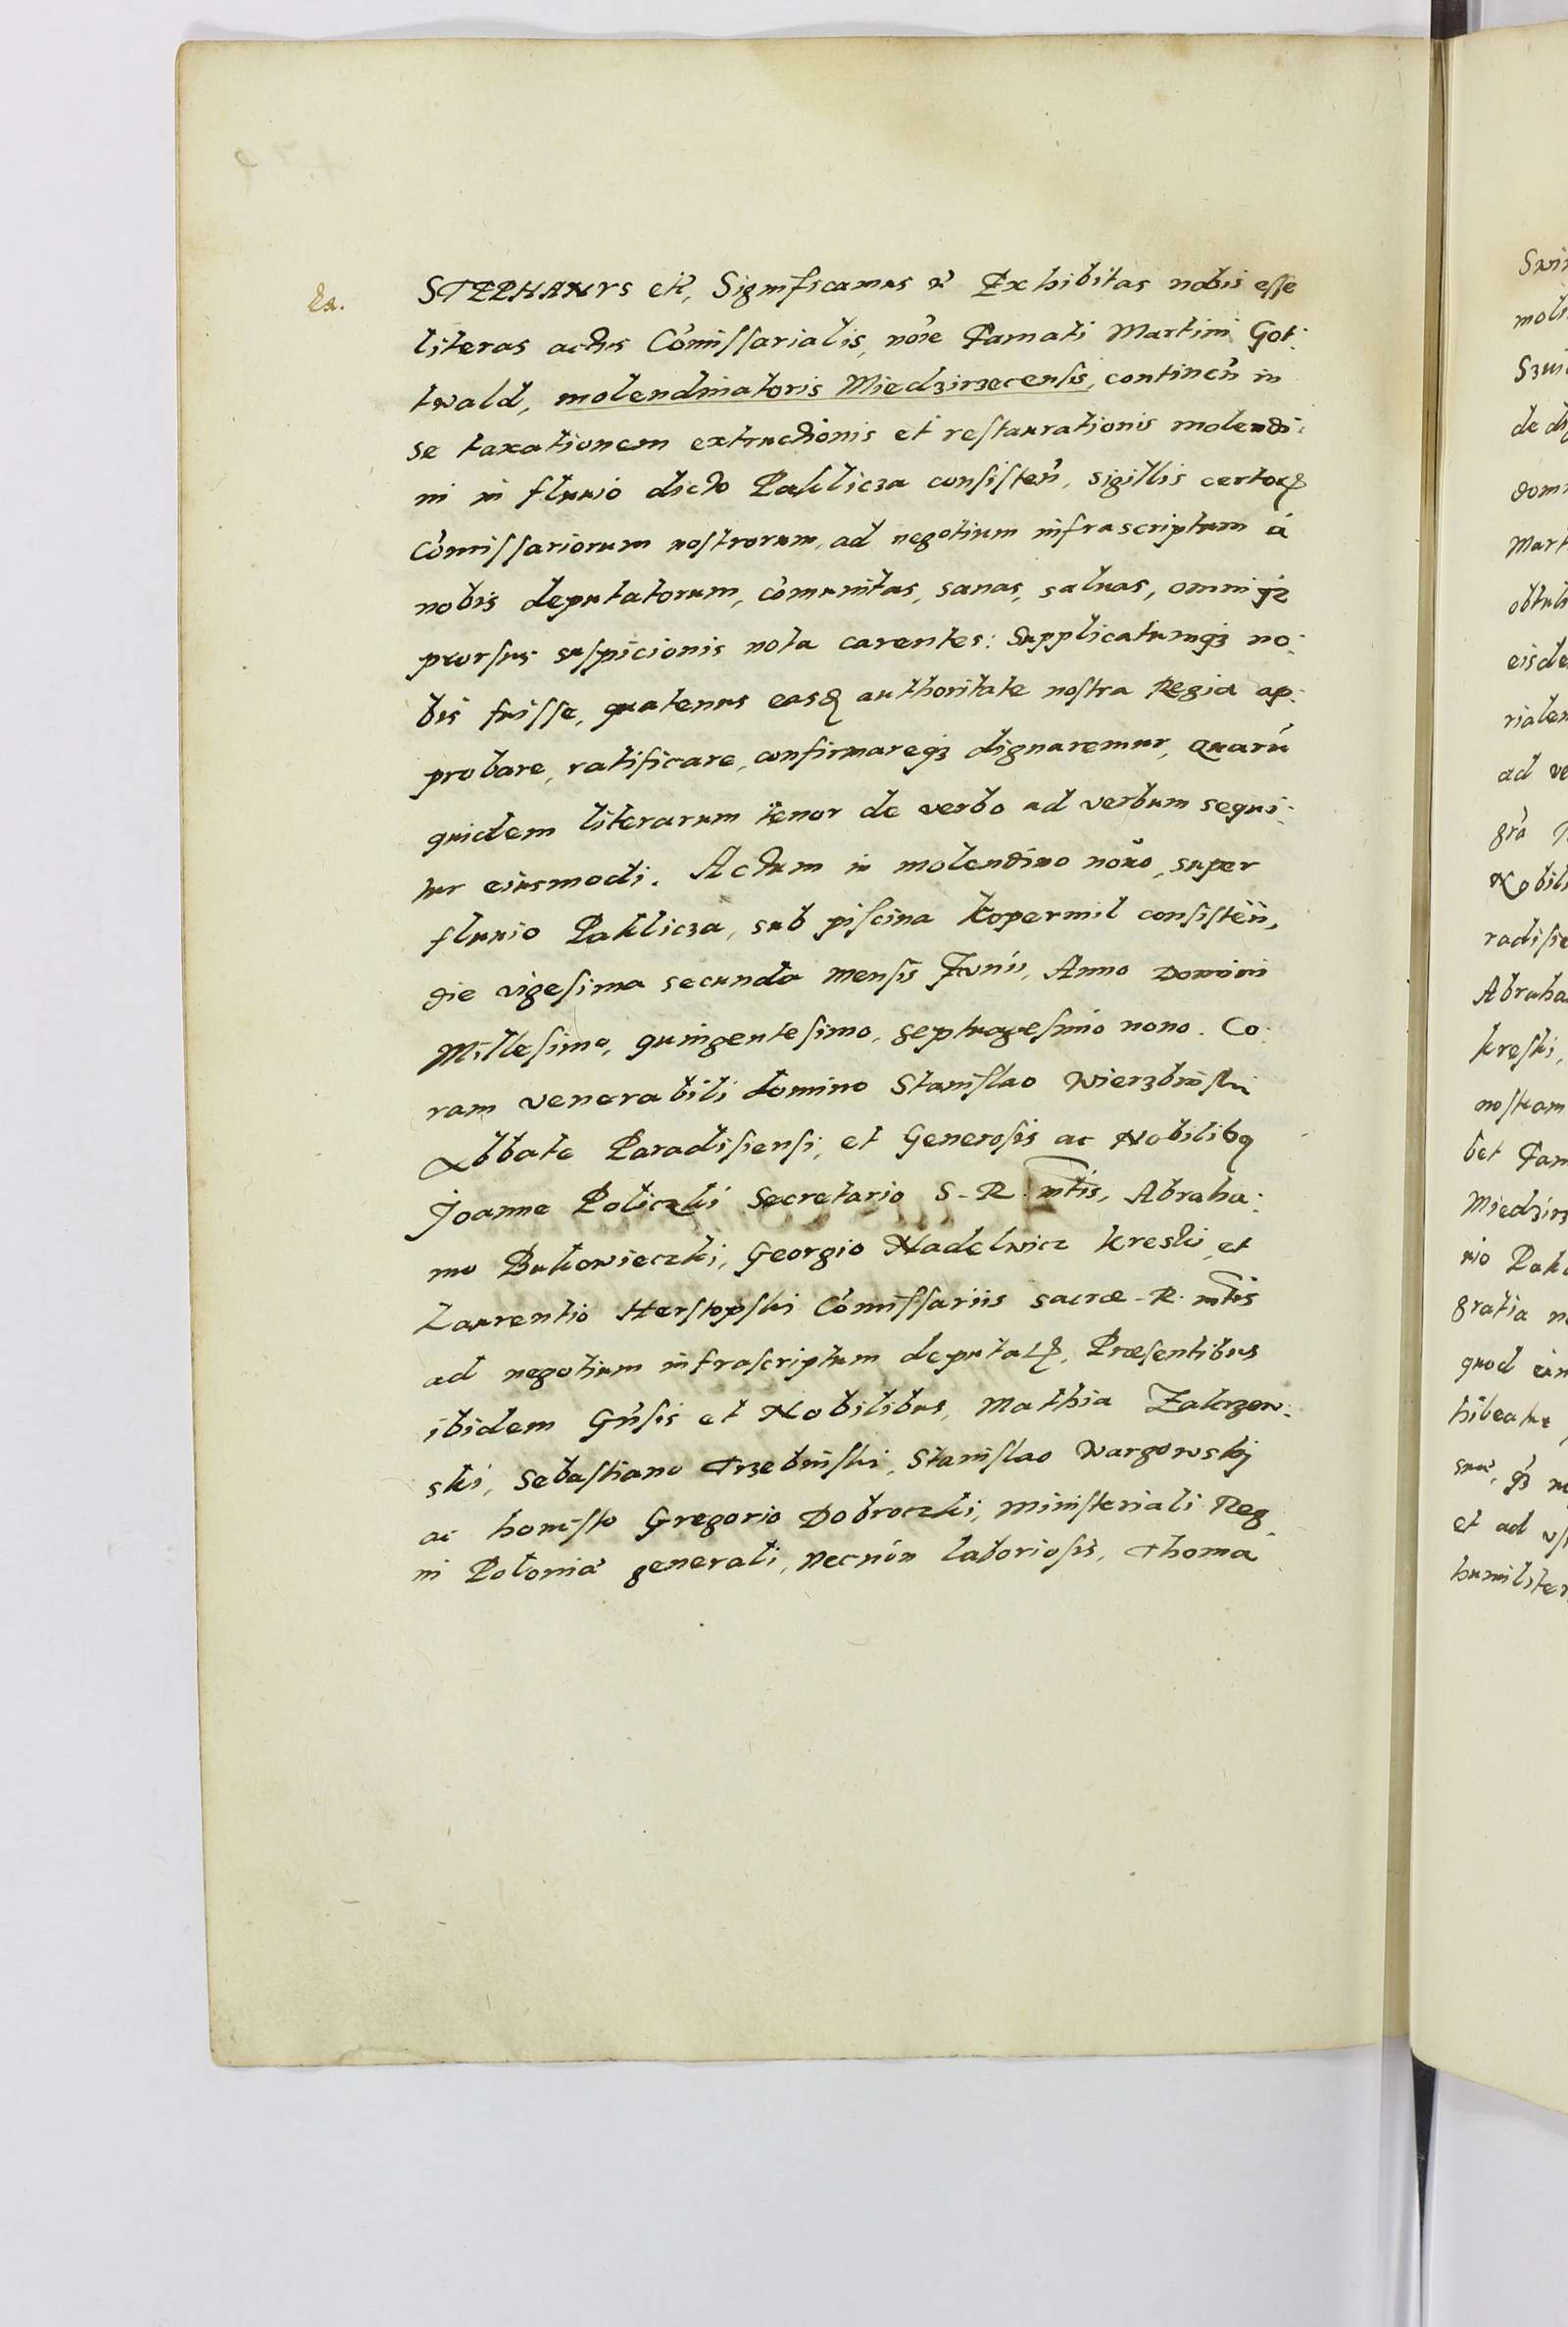 Ex.
STEPHANVS etc, Significamus etc Exhibitas nobis esse
literas actus Cōmissarialis, noīe Famati Martini Got:
twald, molendinatoris Miedzirzecensis, continen̄ in
se taxationem extructionis et restaurationis molendi:
ni in fluuio dicto Paklicza consisten̄, sigillis certoꝝ
Cōmissariorum nostrorum, ad negotium infrascriptum à
nobis deputatorum, cōmunitas, sanas, saluas, omniqꝫ
prorsus suspicionis nota carentes: Supplicatumqꝫ no:
bis fuisse, quatenus easd authoritate nostra Regia ap:
probare, ratificare, confirmareqꝫ dignaremur, Quarū
quidem literarum tenor de verbo ad verbum sequi:
tur eiusmodi. Actum in molendino nouo, super
fluuio Paklicza, sub piscina Kopermil consisten̄,
die vigesima secunda mensis Junii, Anno Domini
Millesimo, quingentesimo, septuagesimo nono. Co:
ram venerabili domino Stanislao Wierzbinski
Abbate Paradisiensi, et Generosis ac Nobilibꝗ
Joanne Policzki Secretario S. R. mtis, Abraha:
mo Bukowieczki, Georgio Nadelwicz Kreski, et
Laurentio Herstopski Cōmissariis sacræ R. mtis
ad negotium infrascriptum deputatꝭ, Præsentibus
ibidem Gn̄sis et Nobilibus, Mathia Zakrzew:
ski, Sebastiano Trzebinski, Stanislao Wargowskÿ
ac honesto Gregorio Dobroczki, ministeriali Reg:
ni Poloniæ generali, necnōn laboriosis, Thoma
moli
de
dom
Mart
obtuli
eisde
rialem
ad ve
grā
Nobili
radisie
Abraha
kreski,
nostram
bet Fam
Miedzirz
uio Pak
gratia
quod
hibeatur
et ad
humiliter